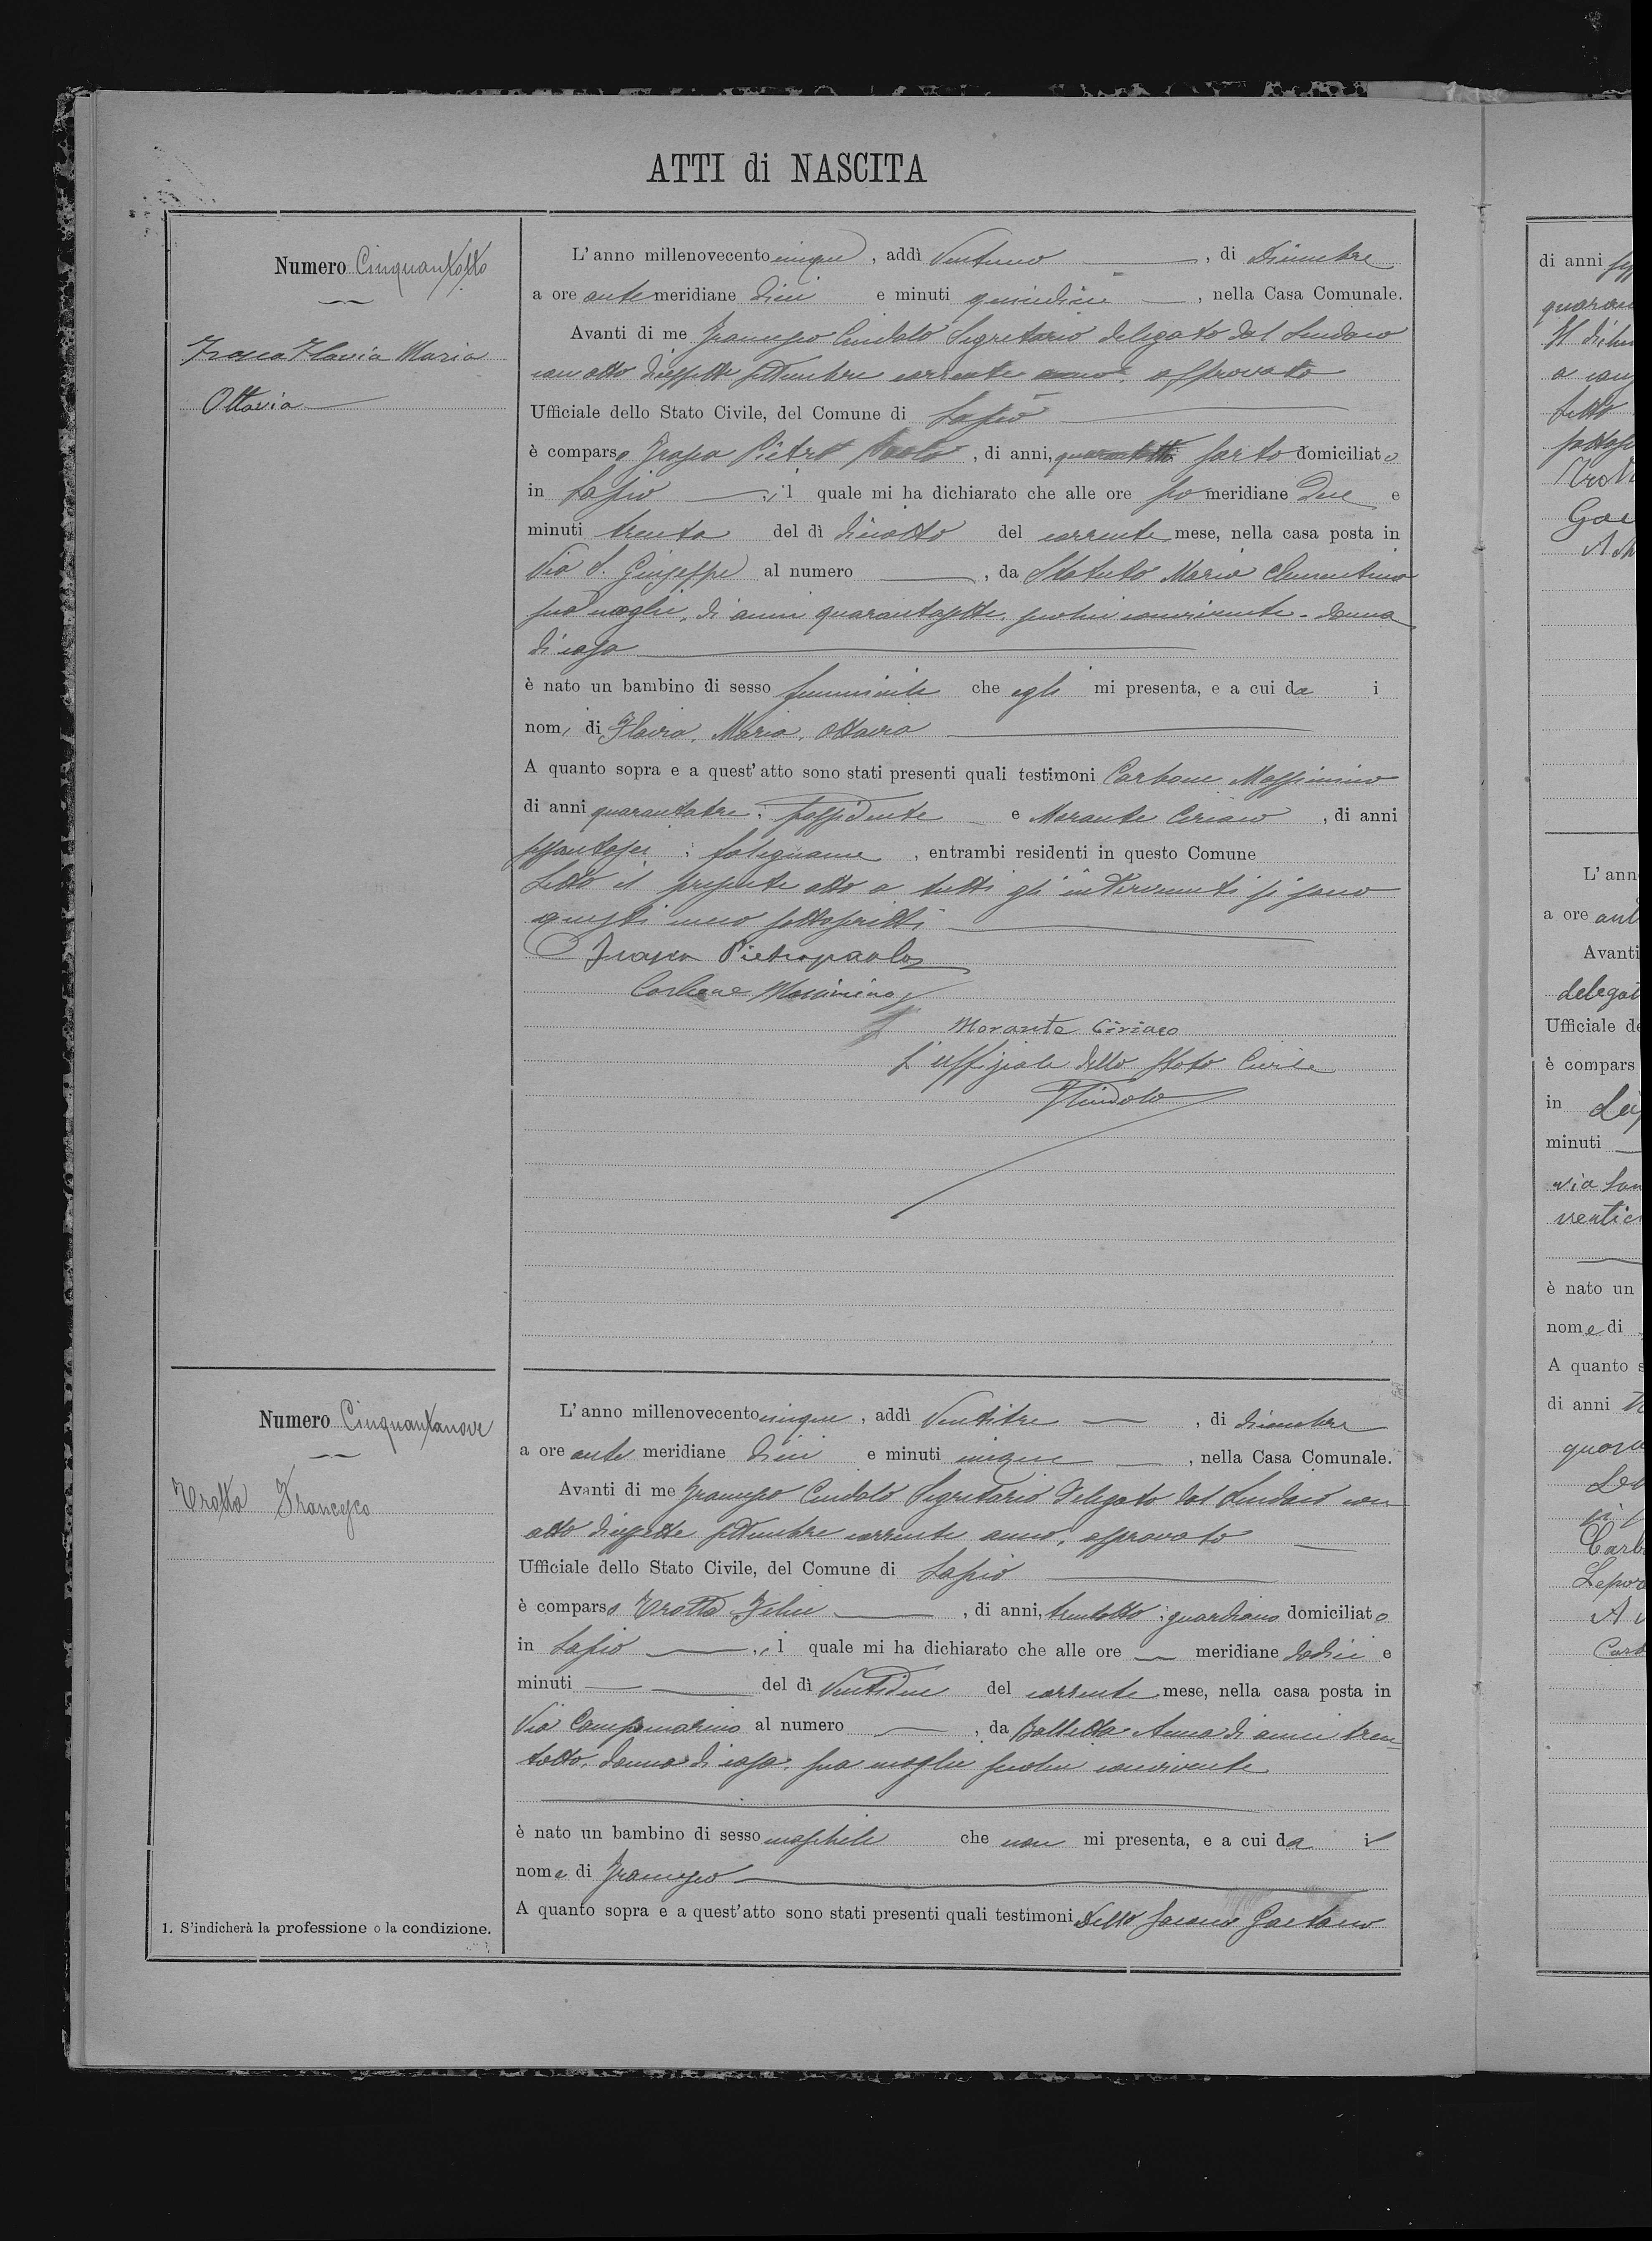 ATTI di NASCITA
Numero Cinquantotto
Frasca Flavia Maria
Ottavia
L'anno millenovecentocinque, addì Ventuno, di Dicembre
a ore antemeridiane dieci e minuti quindici, nella Casa Comunale.
Avanti di me Francesco Cindolo Segretario delegato dal Sindaco
con atto diciassette settembre corrente anno, approvato
Ufficiale dello Stato Civile, del Comune di Lapio
è comparso Frasca Pietro Paolo, di anni, sarto domiciliato
in Lapio, il quale mi ha dichiarato che alle ore pomeridiane Due e
minuti trenta del dì diciotto del corrente mese, nella casa posta in
Via S. Giuseppe al numero —, da Statuto Maria Clementina
sua moglie, di anni quarantasette, seco lui convivente, donna
di casa
è nato un bambino di sesso femminile che egli mi presenta, e a cui da i
nomi di Flavia, Maria, Ottavia
A quanto sopra e a quest'atto sono stati presenti quali testimoni Carbone Massimino
di anni quarantatre, possidente e Morante Ciriaco, di anni
sessantasei, falegname, entrambi residenti in questo Comune
Letto il presente atto a tutti gli intervenuti si sono
questi meco sottoscritti
Frasca Pietropaolo
Carbone Massimino
Morante Ciriaco
L'uffiziale dello Stato Civile
FCindolo
Numero Cinquantanove
Trotta Francesco
L'anno millenovecentocinque, addì Ventitre —, di dicembre
a ore antemeridiane dieci e minuti cinque —, nella Casa Comunale.
Avanti di me Francesco Cindolo Segretario delegato dal Sindaco con
atto diciassette settembre corrente anno, approvato
Ufficiale dello Stato Civile, del Comune di Lapio
è comparso Trotta Felice —, di anni, trentotto; guardiano domiciliato
in Lapio —, il quale mi ha dichiarato che alle ore — meridiane dodici e
minuti — del dì Ventidue del corrente mese, nella casa posta in
Via Campomarino al numero —, da Anna di anni tren=
totto, donna di casa, sua moglie seco lui convivente
è nato un bambino di sesso maschile che non mi presenta, e a cui da il
nome di Francesco
A quanto sopra e a quest'atto sono stati presenti quali testimoni Gaetano
1. S'indicherà la professione o la condizione.
di anni
a
L'ann
a ore ant
Avanti
delegat
Ufficiale de
è compars
in
minuti
via
è nato un
nome di
A quanto s
di anni